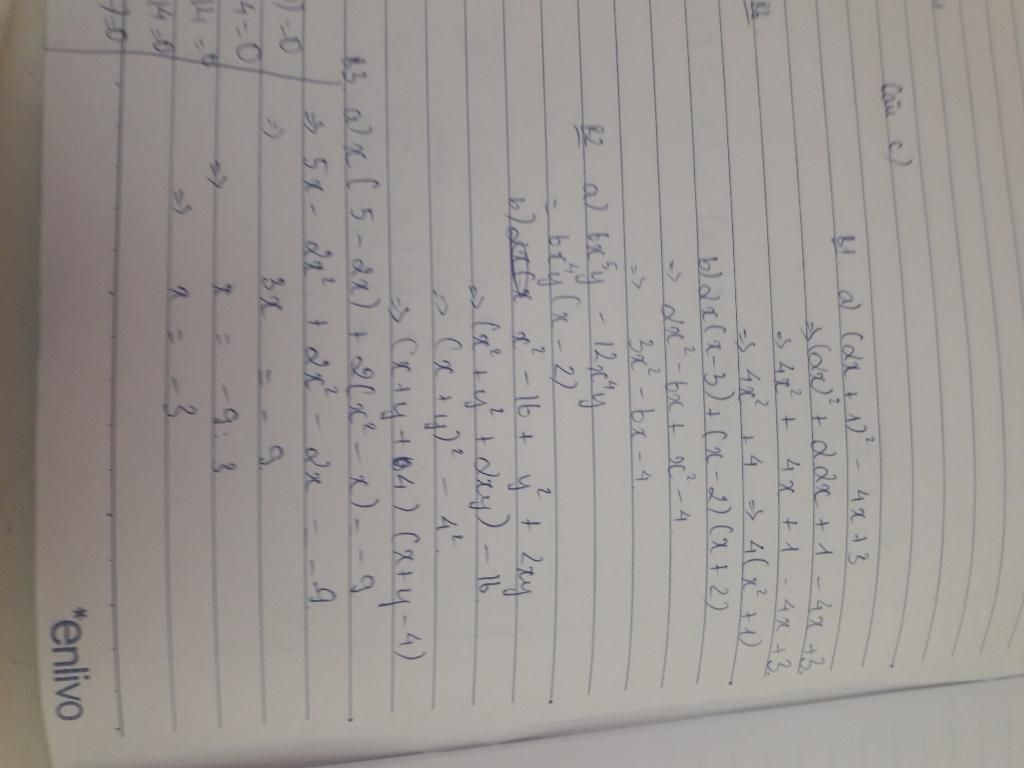 Câu c)
B1 a) (2x + 1)² - 4x + 3
⇒ (2x)² + 2.2x + 1 - 4x + 3
⇒ 4x² + 4x + 1 - 4x + 3
⇒ 4x² + 4 ⇒ 4(x² + 1)
b) 2x(x - 3) + (x - 2)(x + 2)
⇒ 2x² - 6x + x² - 4
⇒ 3x² - 6x - 4
B2 a) 6x⁵y - 12x⁴y
= 6x⁴y(x - 2)
b) x² - 16 + y² + 2xy
⇒ (x² + y² + 2xy) - 16
⇒ (x + y)² - 4²
⇒ (x + y + 4)(x + y - 4)
B3 a) x(5 - 2x) + 2(x² - x) = -9
⇒ 5x - 2x² + 2x² - 2x = -9
⇒ 3x = -9
⇒ x = -9 : 3
⇒ x = -3
) = 0
4 = 0
14 = 0
*enlivo